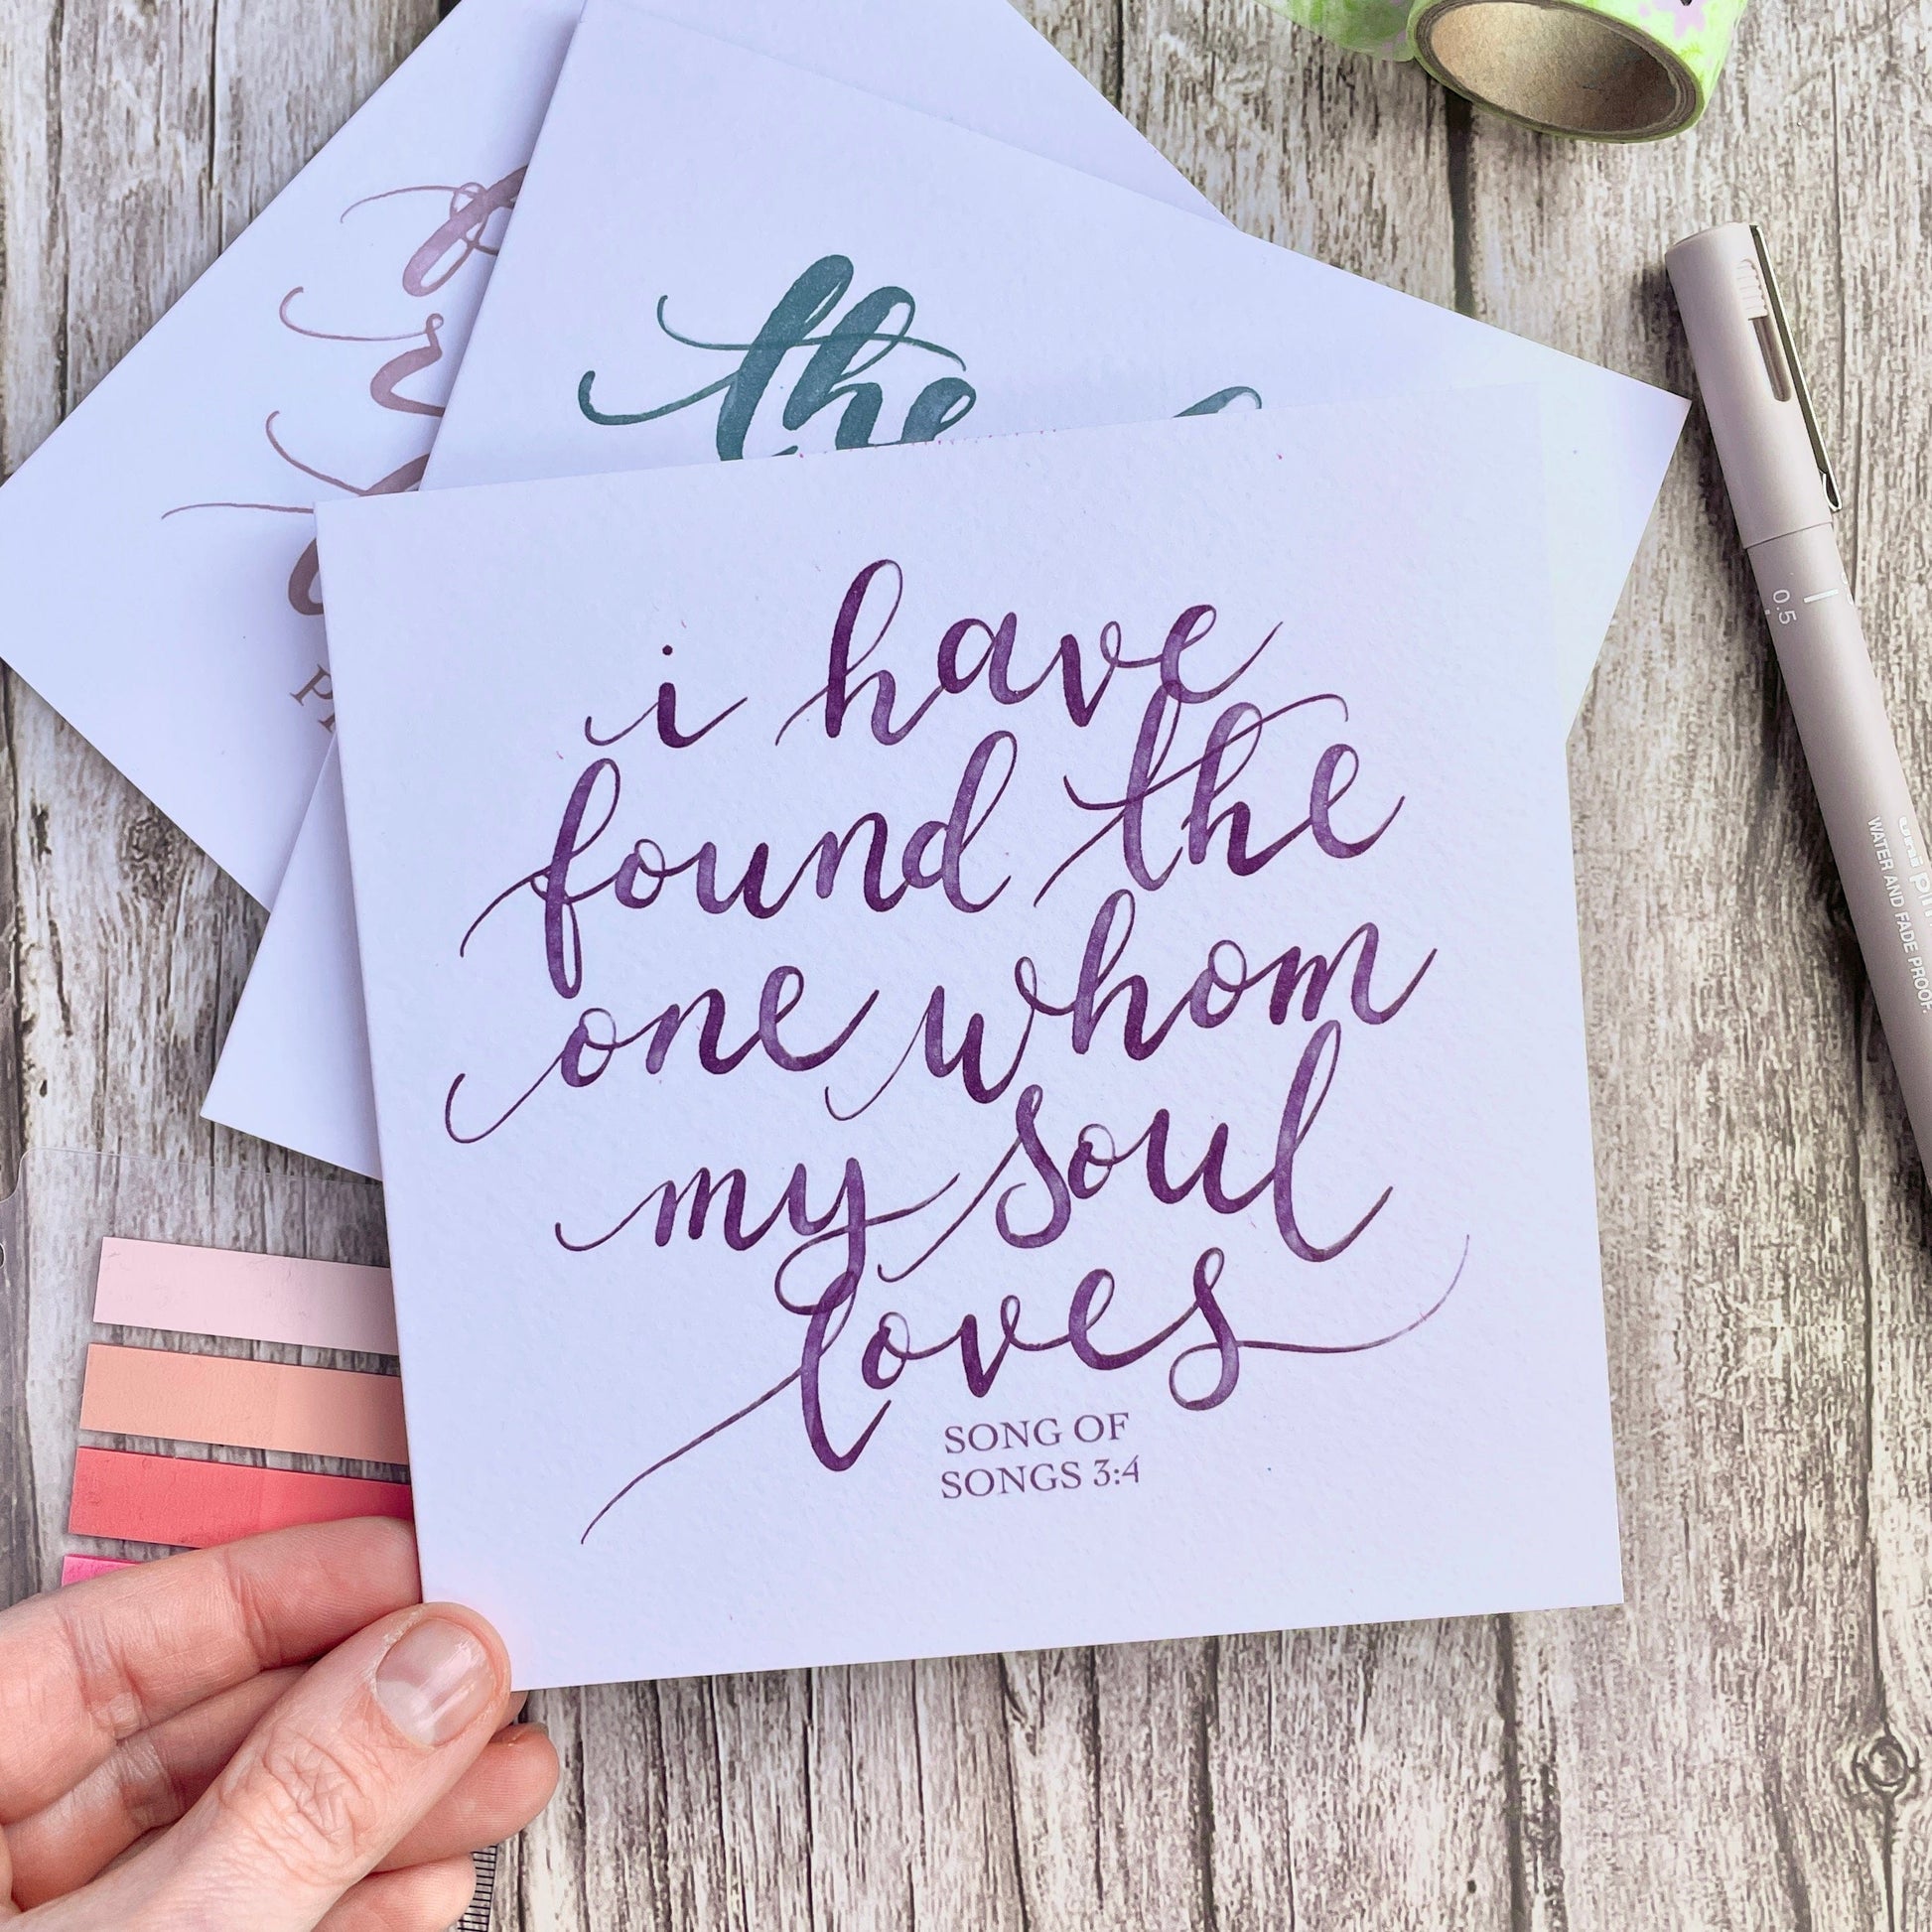 the
i have
found the
one whom
my soul
loves
SONG OF
SONGS 3:4
0.5
WATER AND FADE PROOF